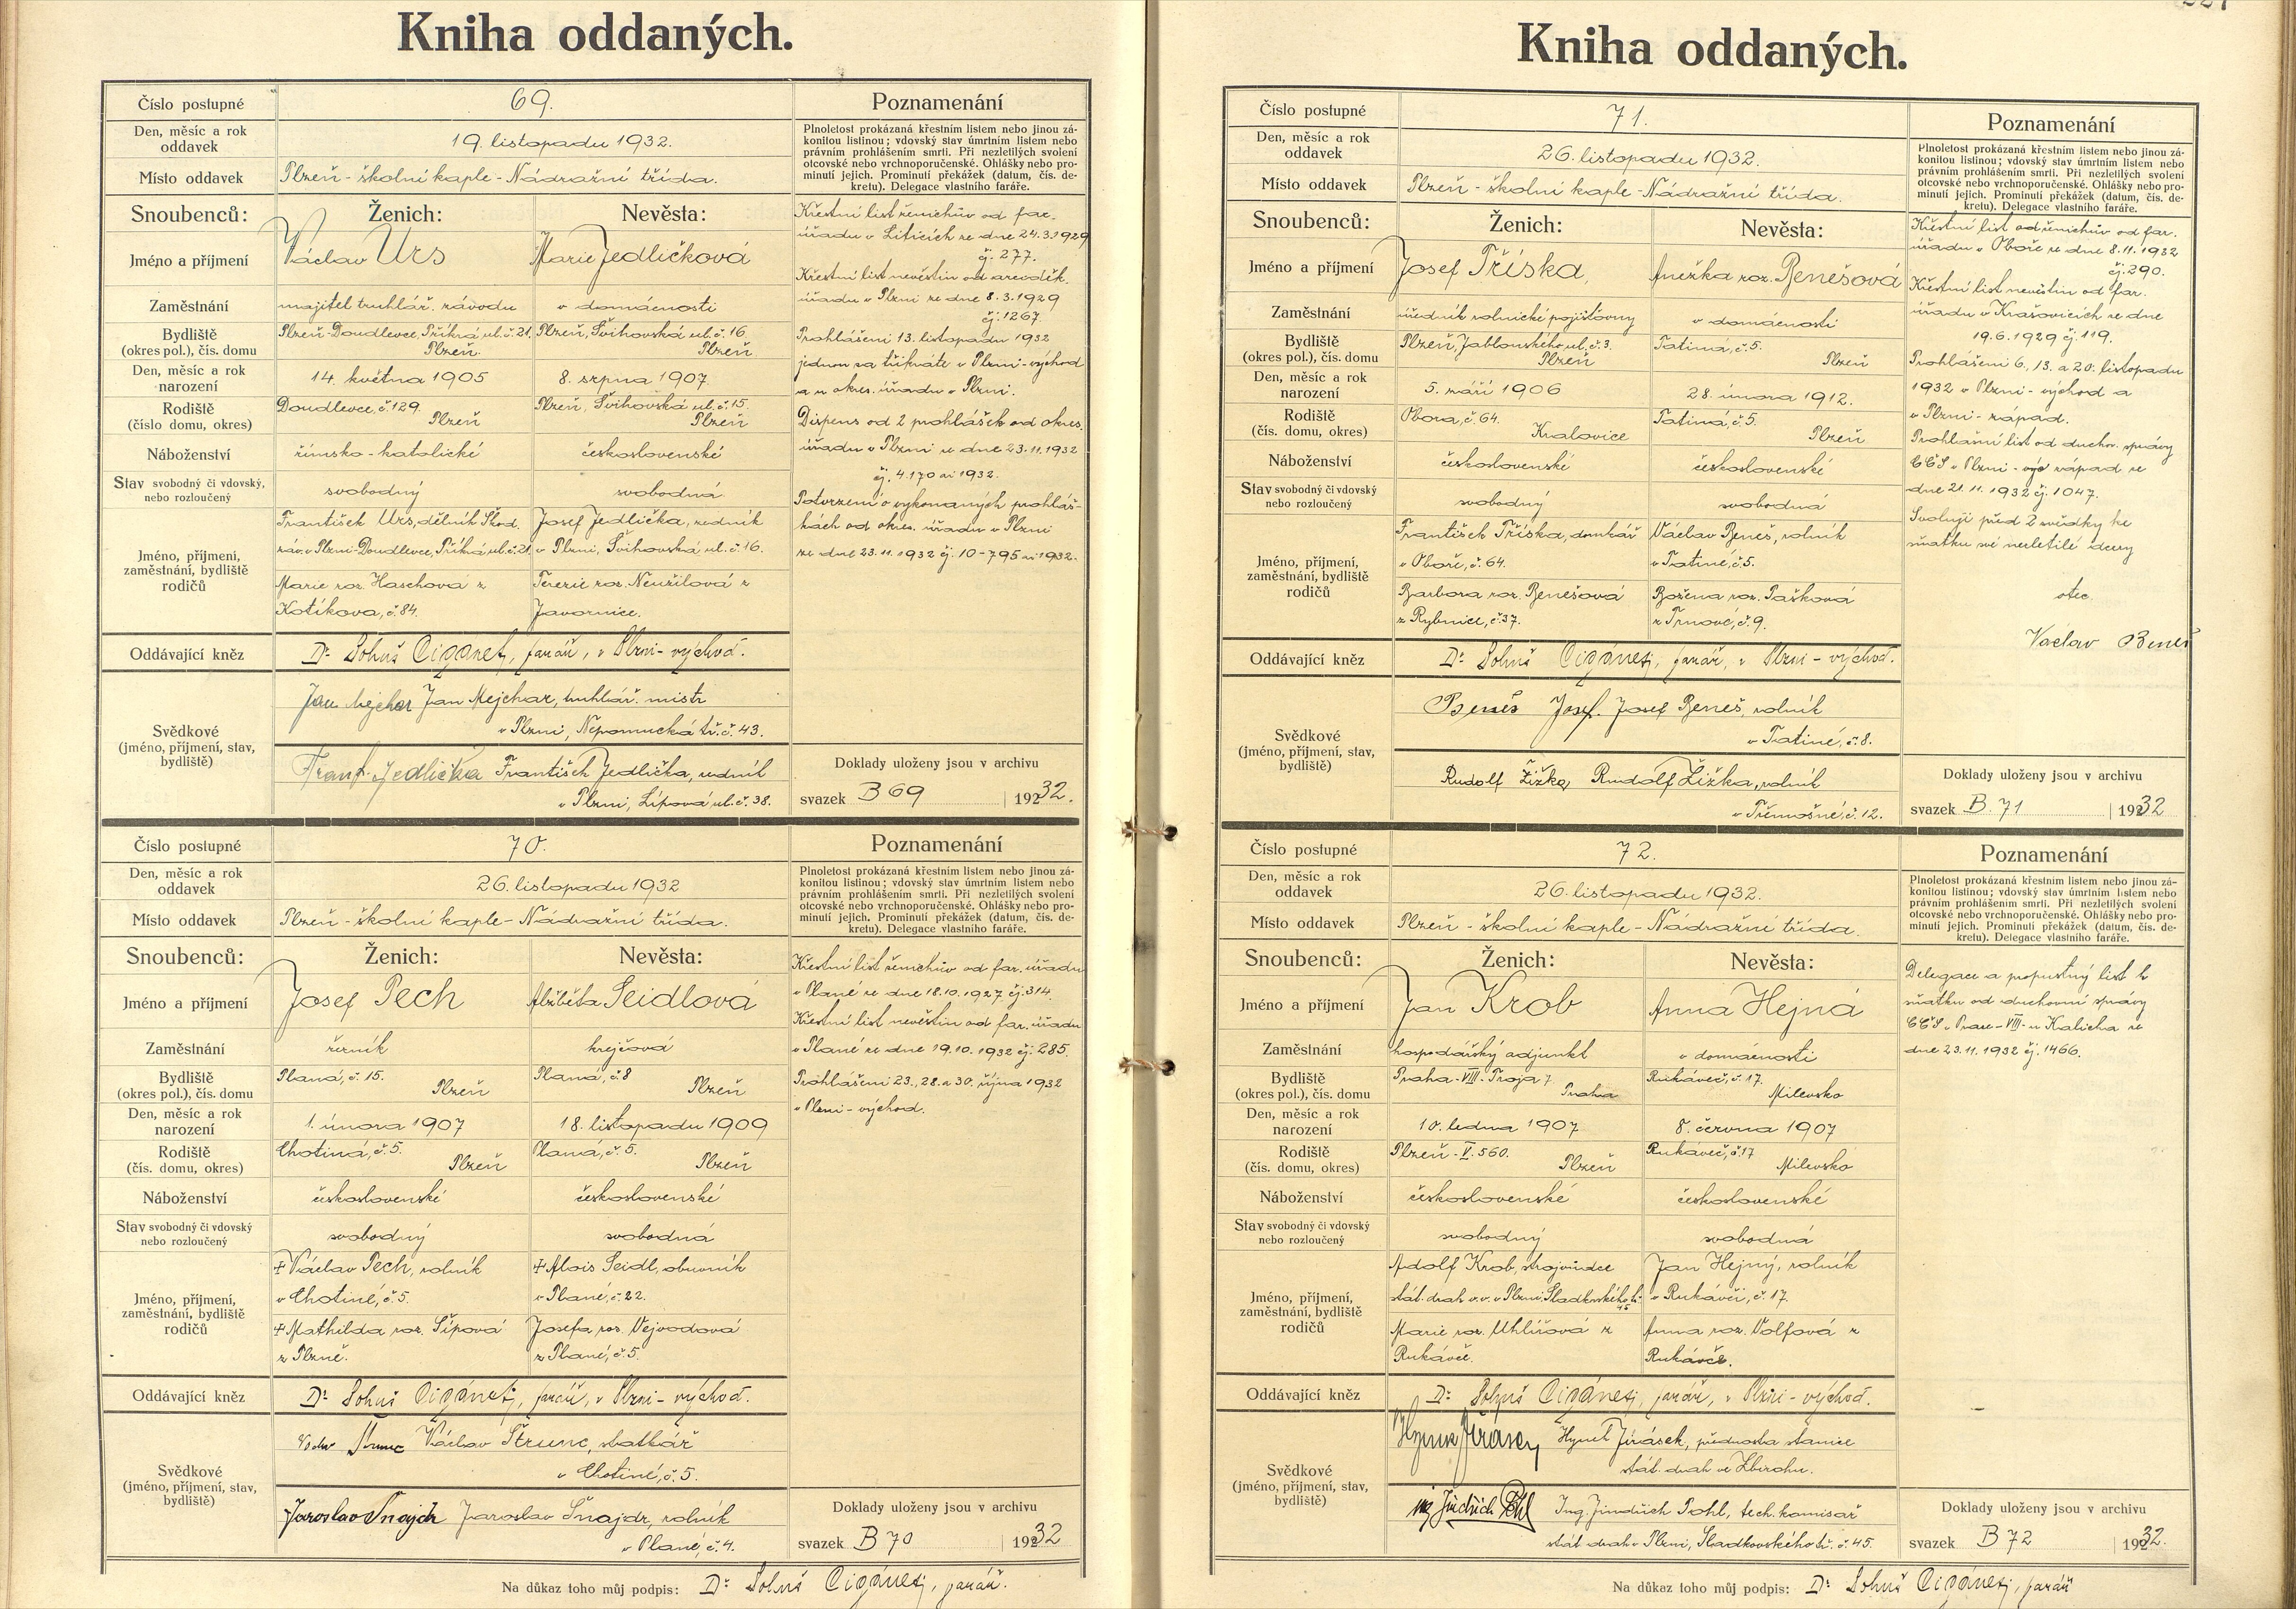 Kniha oddaných.
Číslo postupné 69. Poznamenání
Den, měsíc a rok oddavek 19. listopadu 1932.
Místo oddavek Plzeň - školní kaple - Nádražní třída.
Plnoletost prokázaná křestním listem nebo jinou zá-
konitou listinou; vdovský stav úmrtním listem nebo
právním prohlášením smrti. Při nezletilých svolení
otcovské nebo vrchnoporučenské. Ohlášky nebo pro-
minutí jejich. Prominutí překážek (datum, čís. de-
kretu). Delegace vlastního faráře.
Snoubenců: Ženich: Nevěsta:
Jméno a příjmení Václav Urs Marie Jedličková
Zaměstnání majitel truhlář. závodu v domácnosti
Bydliště (okres pol.), čís. domu Plzeň-Doudlevce, Příkrá ul. č. 21. Plzeň. Plzeň, Švihovská ul. č. 16. Plzeň
Den, měsíc a rok narození 14. května 1905 8. srpna 1907.
Rodiště (číslo domu, okres) Doudlevce, č. 129. Plzeň Plzeň, Švihovská ul. č. 15. Plzeň
Náboženství římsko-katolické československé
Stav svobodný či vdovský, nebo rozloučený svobodný svobodná
Jméno, příjmení, zaměstnání, bydliště rodičů
František Urs, dělník Škod.
záv. v Plzni-Doudlevce, Příkrá ul. č. 21.
Marie roz. Haschová z
Kotíkova, č. 84.
Josef Jedlička, zedník
v Plzni, Švihovská ul. č. 16.
Terezie roz. Neužilová z
Javornice.
Křestní list ženichův od far.
úřadu v Liticích ze dne 24.3.1929
čj. 277.
Křestní list nevěstin od arciděk.
úřadu v Plzni ze dne 8.3.1929
čj. 1267
Prohlášeni 13. listopadu 1932
jednou za třikráte v Plzni-východ
a u okres. úřadu v Plzni.
Dispens od 2 prohlášek od okres.
úřadu v Plzni ze dne 23.11.1932
čj. 4.170 ai 1932.
Potvrzení o vykonaných prohláš-
kách od okres. úřadu v Plzni
ze dne 23.11.1932 čj. 10-795 ai 1932.
Oddávající kněz Dr Lohuš Cigánek, farář, v Plzni-východ.
Svědkové (jméno, příjmení, stav, bydliště)
Jan Mejchar Jan Mejchar, truhlář. mistr
v Plzni, Nepomucká tř. č. 43.
Frant. Jedlička František Jedlička, zedník
v Plzni, Lípová ul. č. 38.
Doklady uloženy jsou v archivu
svazek B 69 | 1932.
Číslo postupné 70. Poznamenání
Den, měsíc a rok oddavek 26. listopadu 1932
Místo oddavek Plzeň - školní kaple - Nádražní třída.
Plnoletost prokázaná křestním listem nebo jinou zá-
konitou listinou; vdovský stav úmrtním listem nebo
právním prohlášením smrti. Při nezletilých svolení
otcovské nebo vrchnoporučenské. Ohlášky nebo pro-
minutí jejich. Prominutí překážek (datum, čís. de-
kretu). Delegace vlastního faráře.
Snoubenců: Ženich: Nevěsta:
Jméno a příjmení Josef Pech Alžběta Seidlová
Zaměstnání řezník krejčová
Bydliště (okres pol.), čís. domu Planá, č. 15. Plzeň Planá, č. 8 Plzeň
Den, měsíc a rok narození 1. února 1907 18. listopadu 1909
Rodiště (čís. domu, okres) Chotiná, č. 5. Plzeň Planá, č. 5. Plzeň
Náboženství československé československé
Stav svobodný či vdovský nebo rozloučený svobodný svobodná
Jméno, příjmení, zaměstnání, bydliště rodičů
+ Václav Pech, rolník
v Chotiné, č. 5.
+ Mathilda roz. Šípová
z Plzně.
+ Alois Seidl, obuvník
v Plané, č. 22.
Josefa roz. Vejvodová
z Plané, č. 5.
Křestní list ženichův od far. úřadu
v Plané ze dne 18.10.1927 čj. 314.
Křestní list nevěstin od far. úřadu
v Plané ze dne 19.10.1932 čj. 285.
Prohlášeni 23., 28. a 30. října 1932
v Plzni-východ.
Oddávající kněz Dr Lohuš Cigánek, farář, v Plzni-východ.
Svědkové (jméno, příjmení, stav, bydliště)
Václav Štrunc, statkář
v Chotiné, č. 5.
Jaroslav Šnajdr Jaroslav Šnajdr, rolník
v Plané, č. 4.
Doklady uloženy jsou v archivu
svazek B 70 | 1932
Na důkaz toho můj podpis: Dr Lohuš Cigánek, farář.
Kniha oddaných.
Číslo postupné 71. Poznamenání
Den, měsíc a rok oddavek 26. listopadu 1932.
Místo oddavek Plzeň - školní kaple - Nádražní třída.
Plnoletost prokázaná křestním listem nebo jinou zá-
konitou listinou; vdovský stav úmrtním listem nebo
právním prohlášením smrti. Při nezletilých svolení
otcovské nebo vrchnoporučenské. Ohlášky nebo pro-
minutí jejich. Prominutí překážek (datum, čís. de-
kretu). Delegace vlastního faráře.
Snoubenců: Ženich: Nevěsta:
Jméno a příjmení Josef Tříska, Anežka roz. Benešová
Zaměstnání úředník rolnické pojišťovny v domácnosti
Bydliště (okres pol.), čís. domu Plzeň, Jablonského ul. č. 3. Plzeň Tatiná, č. 5. Plzeň
Den, měsíc a rok narození 5. září 1906 28. února 1912.
Rodiště (čís. domu, okres) Obora, č. 64. Kralovice Tatiná, č. 5. Plzeň
Náboženství československé československé
Stav svobodný či vdovský nebo rozloučený svobodný svobodná
Jméno, příjmení, zaměstnání, bydliště rodičů
František Tříska, domkář
v Oboře, č. 64.
Barbora roz. Benešová
z Rybnice, č. 37.
Václav Beneš, rolník
v Tatiné, č. 5.
Božena roz. Pašková
z Trnové, č. 9.
Křestní list od ženichův od far.
úřadu v Oboře ze dne 8.11.1932
čj. 290.
Křestní list nevěstin od far.
úřadu v Krašovicích ze dne
19.6.1929 čj. 119.
Prohlášeni 6., 13. a 20. listopadu
1932 v Plzni-východ a
v Plzni-západ.
Prohlašní list od duchov. správy
CČS v Plzni - výc západ ze
dne 21.11.1932 čj. 1047.
Svoluji před 2 svědky ke
sňatku své nezletilé dcery
otec
Václav Beneš
Oddávající kněz Dr Lohuš Cigánek, farář, v Plzni-východ.
Svědkové (jméno, příjmení, stav, bydliště)
Beneš Josef. Josef Beneš, rolník
v Tatiné, č. 8.
Rudolf Žižka Rudolf Žižka, rolník
v Třemošné, č. 12.
Doklady uloženy jsou v archivu
svazek B. 71 | 1932
Číslo postupné 72. Poznamenání
Den, měsíc a rok oddavek 26. listopadu 1932.
Místo oddavek Plzeň - školní kaple - Nádražní třída.
Plnoletost prokázaná křestním listem nebo jinou zá-
konitou listinou; vdovský stav úmrtním listem nebo
právním prohlášením smrti. Při nezletilých svolení
otcovské nebo vrchnoporučenské. Ohlášky nebo pro-
minutí jejich. Prominutí překážek (datum, čís. de-
kretu). Delegace vlastního faráře.
Snoubenců: Ženich: Nevěsta:
Jméno a příjmení Jan Krob Anna Hejná
Zaměstnání hospodářský adjunkt v domácnosti
Bydliště (okres pol.), čís. domu Praha-VIII-Troja 7 Praha Rukáveč, č. 17. Milevsko
Den, měsíc a rok narození 10. ledna 1907 8. června 1907
Rodiště (čís. domu, okres) Plzeň-V. 560. Plzeň Rukáveč, č. 17 Milevsko
Náboženství československé československé
Stav svobodný či vdovský nebo rozloučený svobodný svobodná
Jméno, příjmení, zaměstnání, bydliště rodičů
Adolf Krob, strojvůdce
stát. drah v. v. v Plzni, Sladkovského tř. 45
Marie roz. Uhlířová z
Rukávče.
Jan Hejný, rolník
v Rukávči, č. 17.
Anna roz. Volfová z
Rukávče.
Delegace a propustný list k
sňatku od duchovní správy
CČS v Praze-VIII-u Kalicha ze
dne 23.11.1932 čj. 1466.
Oddávající kněz Dr Lohuš Cigánek, farář, v Plzni-východ.
Svědkové (jméno, příjmení, stav, bydliště)
Hynek Jirásek Hynek Jirásek, přednosta stanice
stát. drah ve Zbirohu.
Ing Jindřich Pohl Ing. Jindřich Pohl, tech. komisař
stát. drah v Plzni, Sladkovského tř. č. 45.
Doklady uloženy jsou v archivu
svazek B 72 | 1932.
Na důkaz toho můj podpis: Dr Lohuš Cigánek, farář